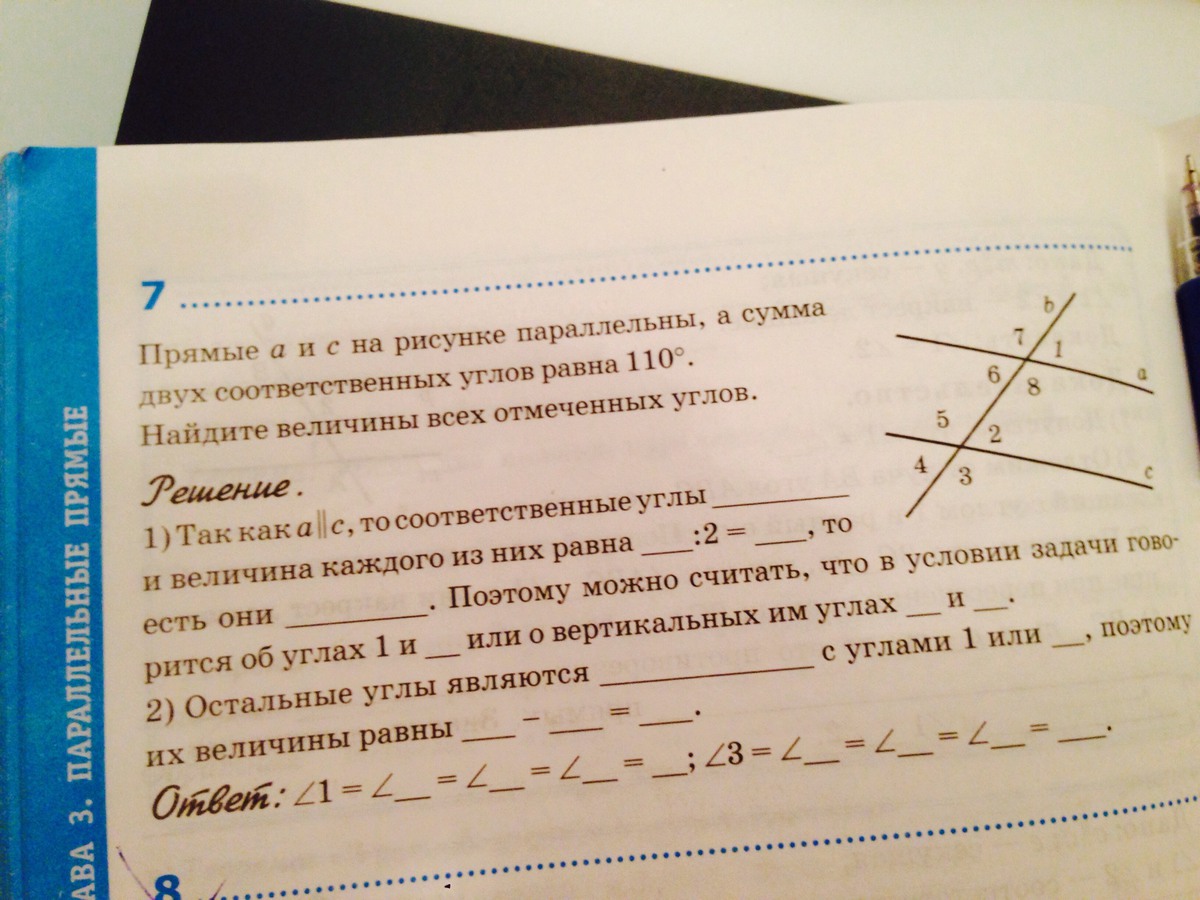 АВА 3. ПАРАЛЛЕЛЬНЫЕ ПРЯМЫЕ
7
Прямые a и c на рисунке параллельны, а сумма
двух соответственных углов равна 110°.
Найдите величины всех отмеченных углов.
b
7 1
a
6 8
5 2
4 3
c
Решение.
1) Так как a∥c, то соответственные углы ________
и величина каждого из них равна ___:2 = ___, то
есть они ________. Поэтому можно считать, что в условии задачи гово-
рится об углах 1 и __ или о вертикальных им углах __ и __.
2) Остальные углы являются ____________ с углами 1 или __, поэтому
их величины равны ___ – ___ = ___.
Ответ: ∠1 = ∠__ = ∠__ = ∠__ = __; ∠3 = ∠__ = ∠__ = ∠__ = ___.
8